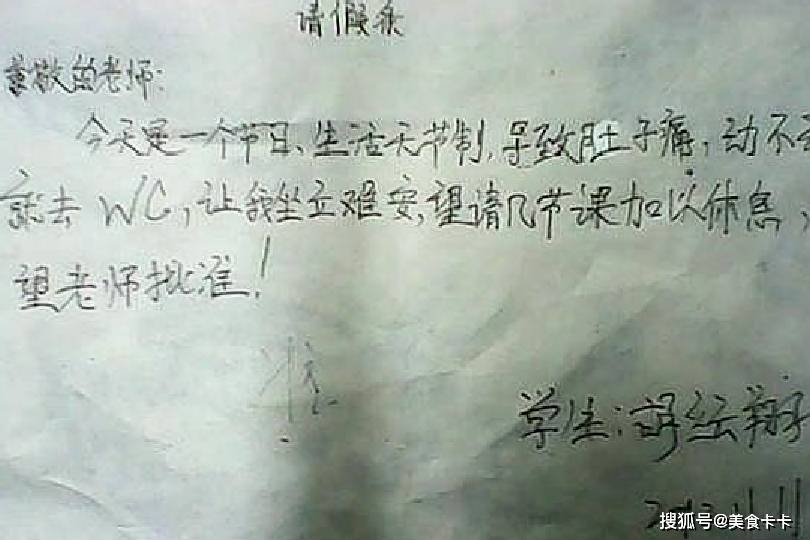 请假条
尊敬的老师:
今天是一个节日、生活无节制,导致肚子痛,动不动
就去 WC,让我坐立难安,望请几节课加以休息,
望老师批准!
准
学生:
11.11
搜狐号@美食卡卡